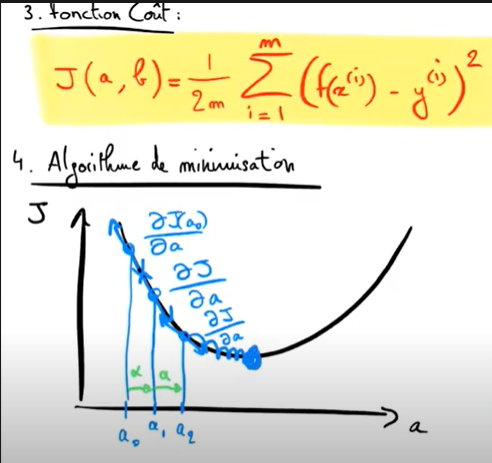 3. fonction Coût :
J(a, b) = 1/2m ∑_{i=1}^{m} (f(x^(i)) - y^(i))^2
4. Algorithme de minimisation
J
∂J(a₀)/∂a
∂J/∂a
∂J/∂a
α α
a₀ a₁ a₂ a